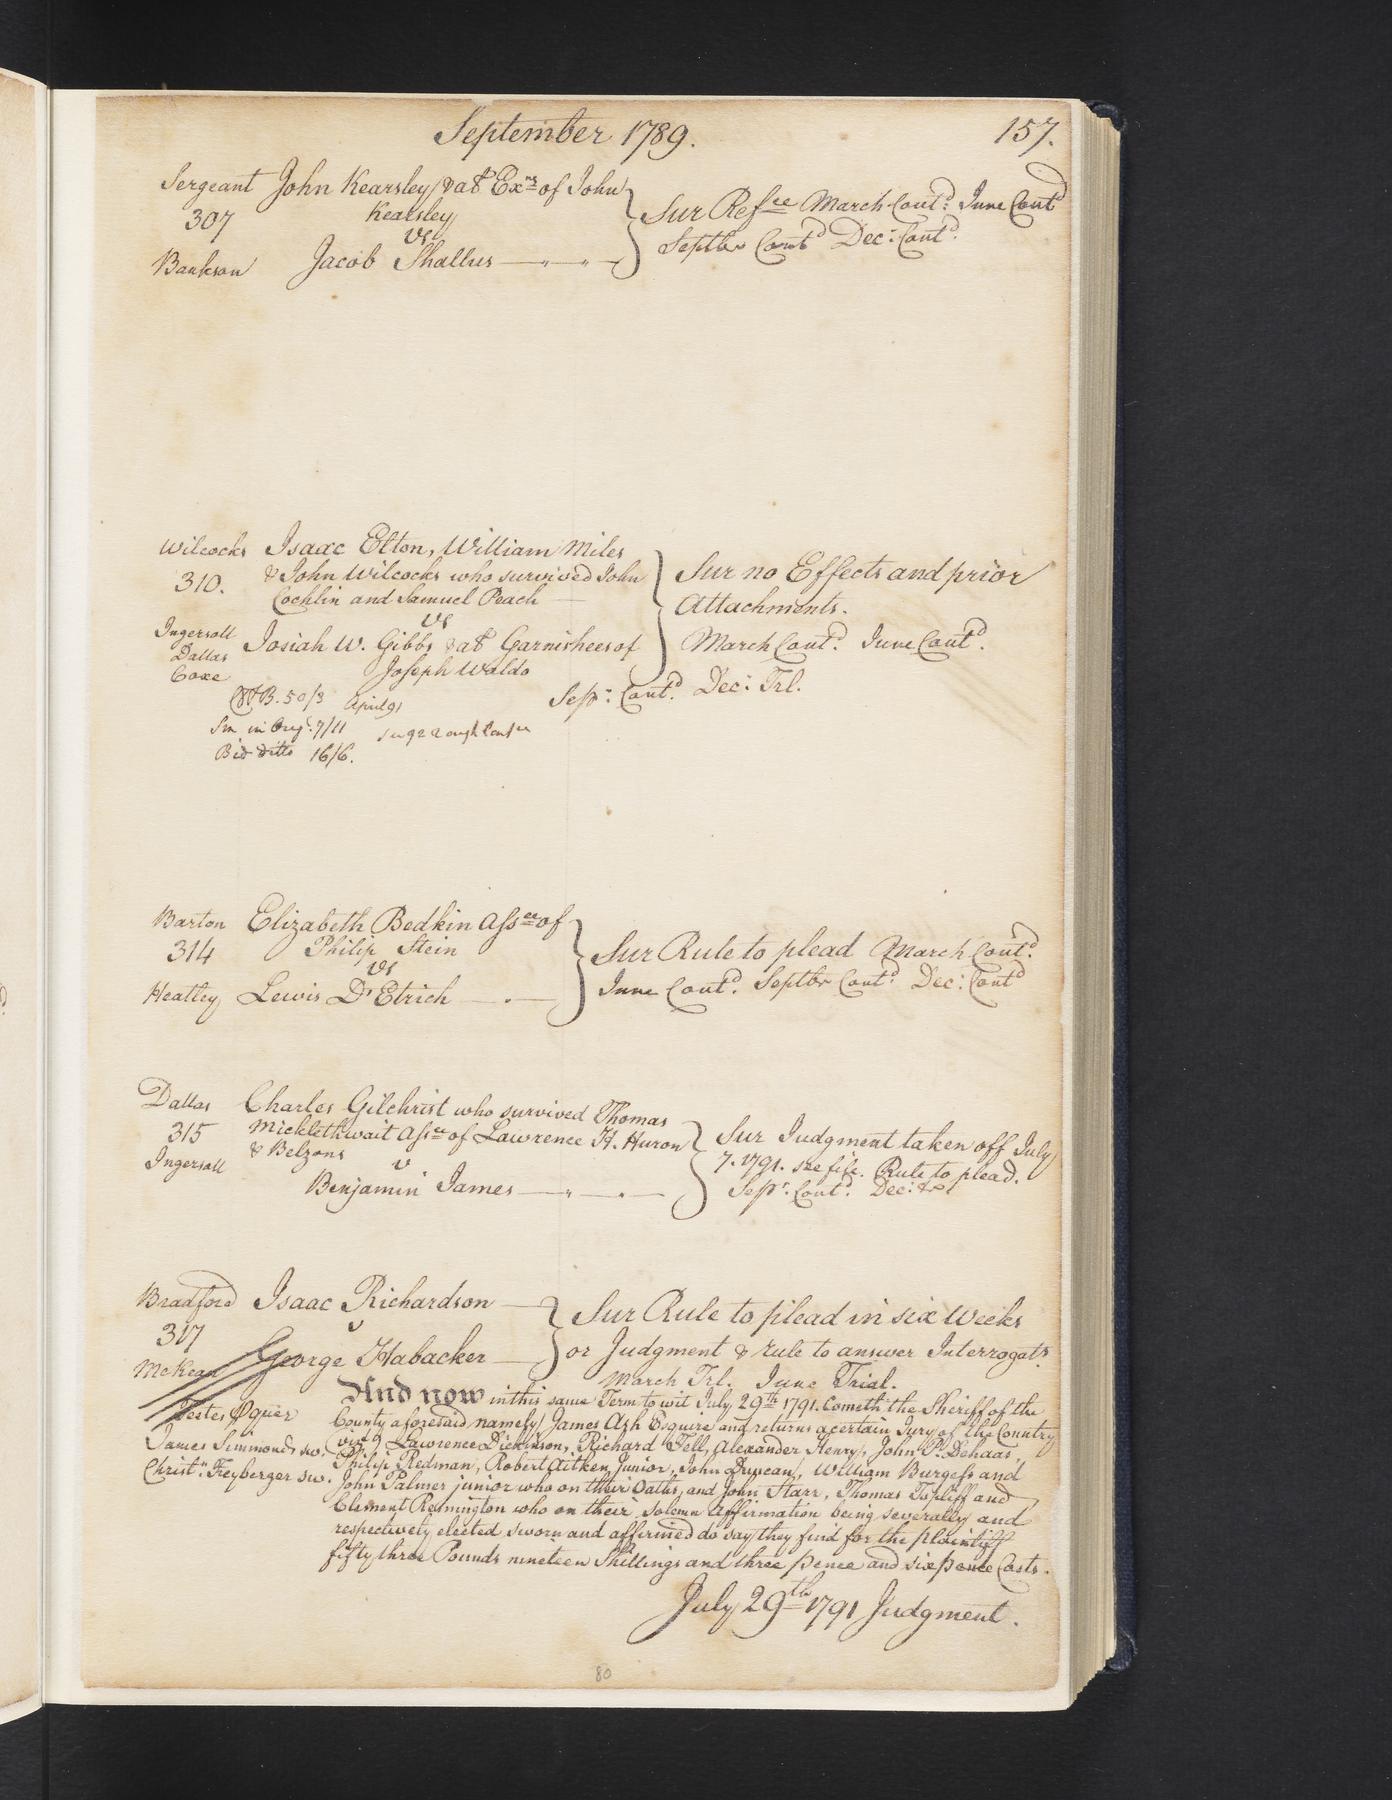 September 1789. 157.
Sergeant John Kearsley & al Ex.rs of John
307 Kearsley
vs
Bankson Jacob Shallus
Sur Ref.ee March Cont.d June Cont.d
Septbr Cont.d Dec.r Cont.d
Wilcocks Isaac Elton, William Miles
310. & John Wilcocks who survived John
Cochlin and Samuel Peach
vs
Ingersoll Josiah W. Gibbs & al Garnishees of
Dallas Joseph Waldo
Coxe
Sur no Effects and prior
Attachments.
March Cont.d June Cont.d
Sep.r Cont.d Dec.r Trl.
B. 50/3 April 91
7/11
Bid ditto 16/6.
Barton Elizabeth Bedkin Ass.ee of
314 Philip Stein
vs
Heatley Lewis D'Etrich
Sur Rule to plead March Cont.d
June Cont.d Septbr Cont.d Dec.r Cont.d
Dallas Charles Gilchrist who survived Thomas
315 Micklethwait Ass.ee of Lawrence H. Huron
Ingersoll & Belzons
v
Benjamin James
Sur Judgment taken off July
7. 1791. see file. Rule to plead.
Sep.r Cont.d Dec.r
Bradford Isaac Richardson
317 v
McKean George Habacker
Sur Rule to plead in six Weeks
or Judgment & rule to answer Interrogat.s
March Trl. June Trial.
And now in this same Term to wit July 29.th 1791. Cometh the Sheriff of the
Testes County aforesaid namely James Ash Esquire and returns a certain Jury of the Country
James Simmonds sw. Lawrence Dickinson, Richard Fell, Alexander Henry, John P. Dehaas,
Christ.n Freyberger sw. Philip Redman, Robert Aitken Junior, John Duncan, William Burgess and
John Palmer junior who on their Oaths, and John Starr, Thomas Topliff and
Clement Remington who on their solemn Affirmation being severally and
respectively elected sworn and affirmed do say they find for the plaintiff
fifty three Pounds nineteen Shillings and three pence and six pence Costs.
July 29.th 1791 Judgment.
80